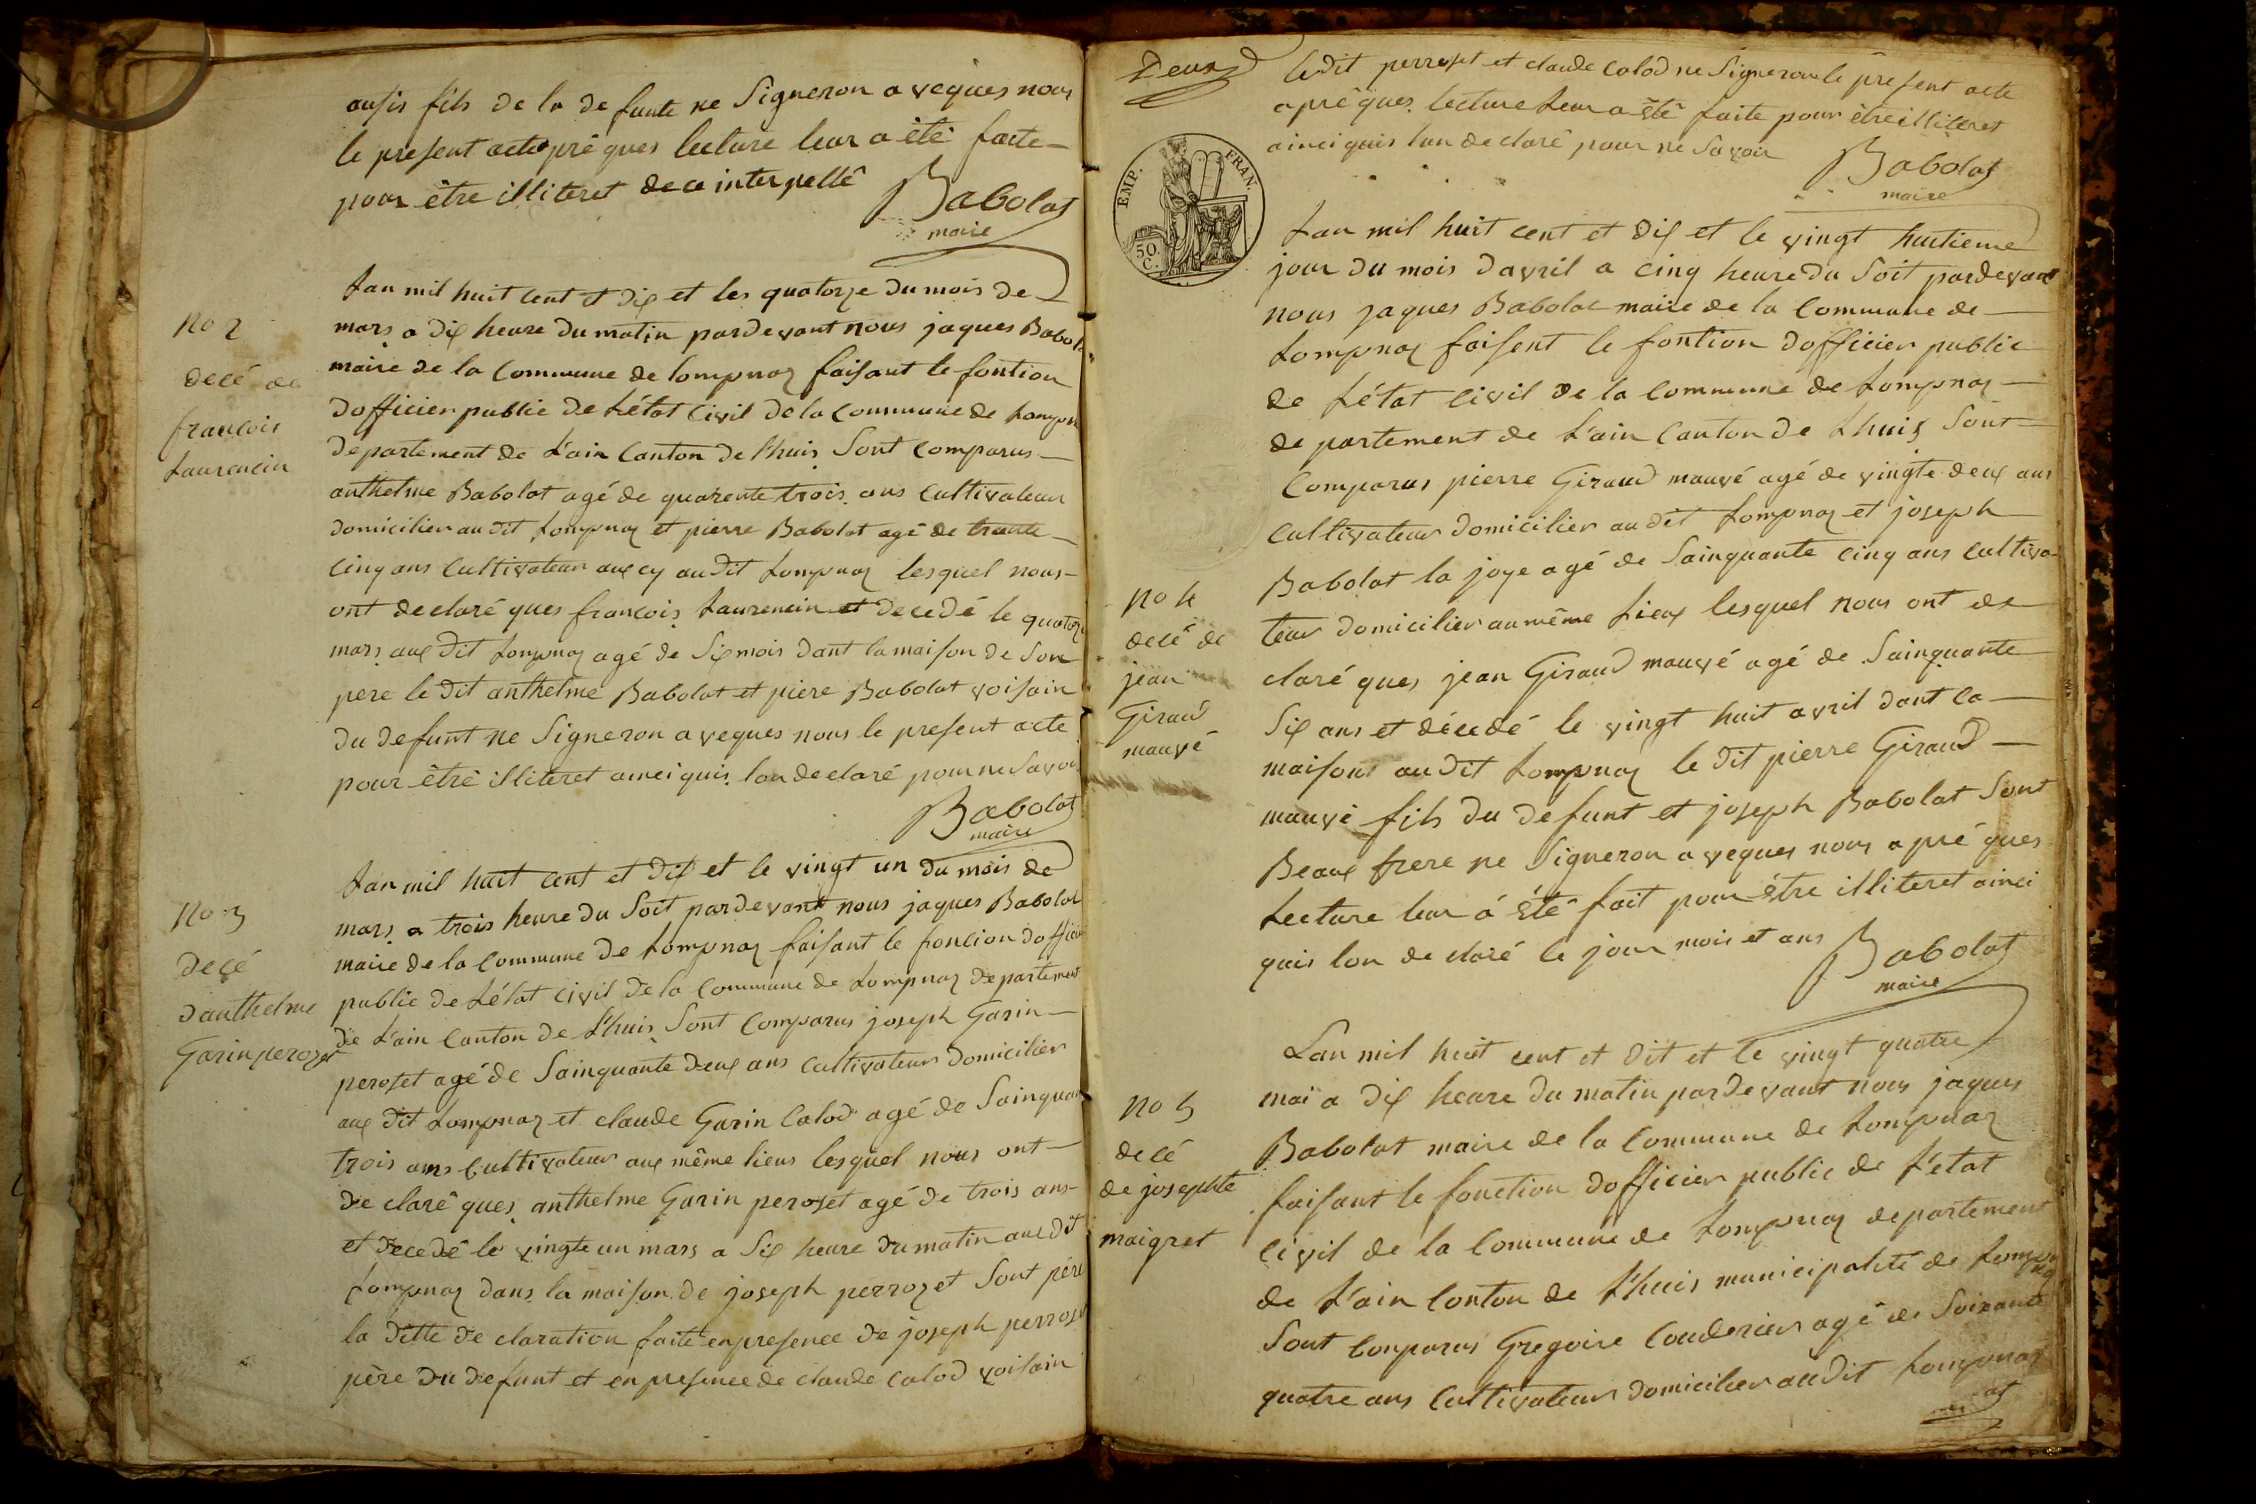 ausis fils de la de funte ne Signeron a veques nous
le present acte pré ques lecture leur a été faite
pour être illiteret de ce interpellé
Babolat
maire
No 2
decé de
francois
Laurencin
Lan mil huit cent et dix et les quatorze du mois de
mars a dix heure du matin pardevant nous jaques Babolat
maire de la Commune de lompnaz faisant le fontion
dofficier public de Létat Civil de la Commune de Lompn
departement de L'ain Canton de Lhuis Sont comparus
anthelme Babolat agé de quarente trois ans Cultivateur
domicilier au dit Lompnaz et pierre Babolat agé de trante
cinq ans Cultivateur aux cy au dit Lompnaz lesquel nous
ont declaré ques francois Laurencin et decedé le quatorze
mars aux dit Lompnaz agé de Six mois dant la maison de Son
pere le dit anthelme Babolat et piere Babolat voisain
du defunt ne Signeron a veques nous le present acte
pour être illiteret ainci quis lon declaré pour ne Savoir
Babolat
maire
No 3
decé
danthelme
Garin perozet
Lan mil huit cent et dix et le vingt un du mois de
mars a trois heure du Soit pardevant nous jaques Babolat
maire de la Commune de Lompnaz faisant le foncion doffici
public de Létat civil de la Commune de Lompnaz departement
de L'ain Canton de L'huis Sont Comparus joseph Garin
peroset agé de Sainquante deux ans Cultivateur domicilier
aux dit Lompnaz et claude Garin Calod agé de Sainquan
trois ans Cultivateur aux même lieux lesquel nous ont
de claré ques anthelme Garin peroset agé de trois ans
et decedé le vingte un mars a Six heure du matin aux dit
Lompnaz dans la maison de joseph perrozet Sont père
la ditte de claration faite en presence de joseph perroset
père du defunt et en presence de claude Calod voisain
Deux
Ledit perroset et claude Calod ne Signeron le present acte
a pré ques lecture Leur a été faite pour être illiteret
ainci quis lon declaré pour ne Savoir
Babolat
maire
EMP. FRAN.
50 C.
Lan mil huit cent et dix et le vingt huitieme
jour du mois davril a cinq heure du Soit pardevant
nous jaques Babolat maire de la Commune de
Lompnaz faisent le fontion dofficier public
de Létat civil de la Commune de Lompnaz
de partement de L'ain Canton de Lhuis Sont
Comparus pierre Giraud mauvé agé de vingte deux ans
Cultivateur domicilier au dit Lompnaz et joseph
Babolat la joye agé de Sainquante cinq ans Cultiva
teur domicilier au même Lieux lesquel nous ont de
claré ques jean Giraud mauvé agé de Sainquante
Six ans et décedé le vingt huit avril dant la
maisons au dit Lompnaz le dit pierre Giraud
mauvé fils du defunt et joseph Babolat Sont
Beaux frere ne Signeron a veques nous a pré ques
Lecture leur a été fait pour être illiteret ainci
quis lon de claré le jour mois et ans
Babolat
maire
No 4
decé de
jean
Giraud
mauvé
No 5
decé
de josephte
maigret
Lan mil huit cent et dit et le vingt quatre
mai a dix heure du matin pardevant nous jaques
Babolat maire de la Commune de Lompnaz
faisant le fonction dofficier public de L'etat
civil de la Commune de Lompnaz departement
de L'ain Conton de L'huis municipalité de Lompnaz
Sont Comparus Gregoire Couderier agé de Soixante
quatre ans Cultivateur domicilier au dit Lompnaz